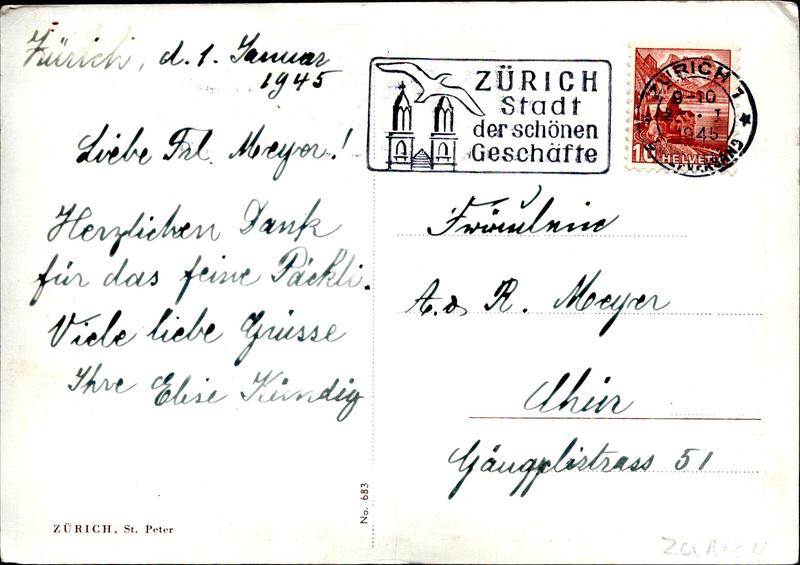 Zürich, d. 1. Januar
1945
Liebe Frl. Meyer!
Herzlichen Dank
für das feine Päckli.
Viele liebe Grüsse
Ihre Elise Kündig
ZÜRICH, St. Peter
No. 683
ZÜRICH
Stadt
der schönen
Geschäfte
ZÜRICH 1
9-10
1945
10 HELVETIA
Fräulein
R. Meyer
Chur
51
ZÜRICH